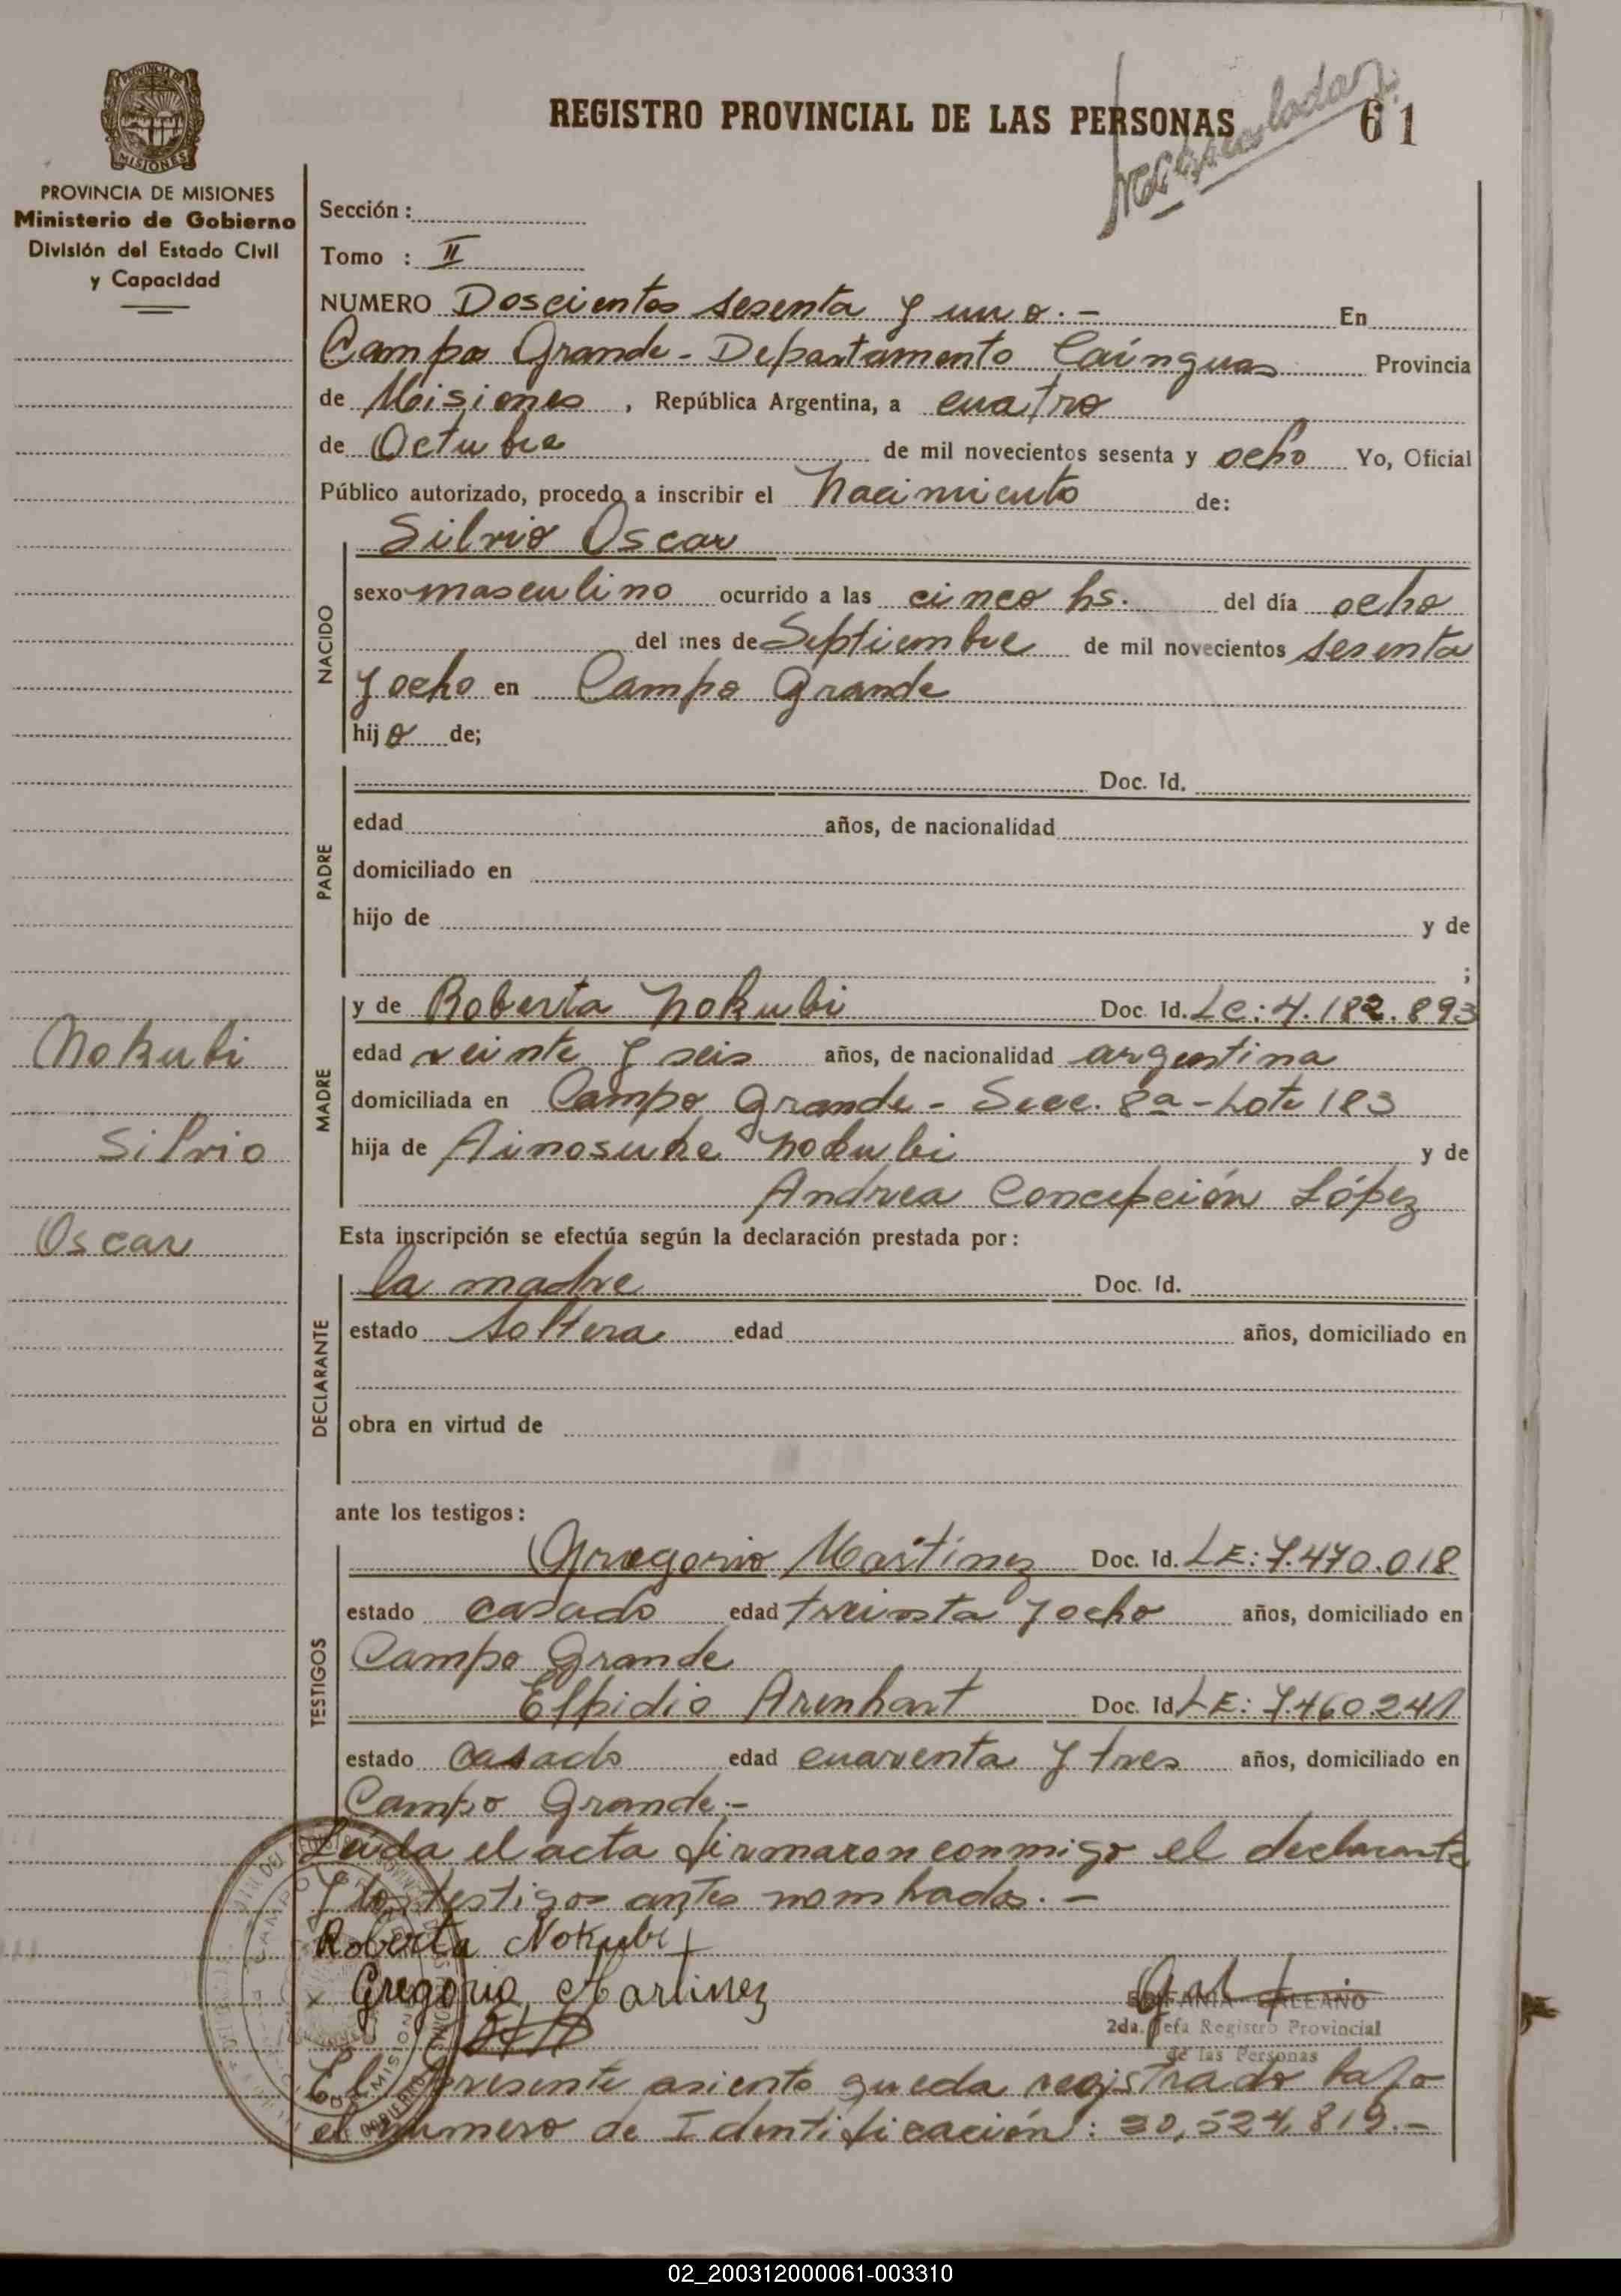 REGISTRO PROVINCIAL DE LAS PERSONAS
61
PROVINCIA DE
MISIONES
PROVINCIA DE MISIONES
Ministerio de Gobierno
División del Estado Civil
y Capacidad
Sección:
Tomo : II
NUMERO Doscientos sesenta y uno.- En
Campo Grande - Departamento Caínguas Provincia
de Misiones, República Argentina, a cuatro
de Octubre de mil novecientos sesenta y ocho Yo, Oficial
Público autorizado, procedo a inscribir el Nacimiento de:
NACIDO
Silvio Oscar
sexo masculino ocurrido a las cinco hs. del día ocho
del mes de Septiembre de mil novecientos sesenta
y ocho en Campo Grande
hijo de;
PADRE
Doc. Id.
edad años, de nacionalidad
domiciliado en
hijo de y de
;
MADRE
y de Roberta Nokubi Doc. Id. LC: 4.182.893
edad veinte y seis años, de nacionalidad argentina
domiciliada en Campo Grande - Secc. 8a - Lote 183
hija de Ainosuke Nokubi y de
Andrea Concepción López
Nokubi
Silvio
Oscar
Esta inscripción se efectúa según la declaración prestada por:
DECLARANTE
la madre Doc. Id.
estado soltera edad años, domiciliado en
obra en virtud de
ante los testigos:
TESTIGOS
Gregorio Martinez Doc. Id. LE: 7.470.018
estado casado edad treinta y ocho años, domiciliado en
Campo Grande
Elpidio Arenhart Doc. Id. LE: 7.460.241
estado casado edad cuarenta y tres años, domiciliado en
Campo Grande.-
Leída el acta firmaron conmigo el declarante
y los testigos antes nombrados.-
Roberta Nokubi
Gregorio Martinez
GALEANO
2da. Jefa Registro Provincial
de las Personas
El presente asiento queda registrado bajo
el numero de Identificación: 20,524,819.-
02_200312000061-003310